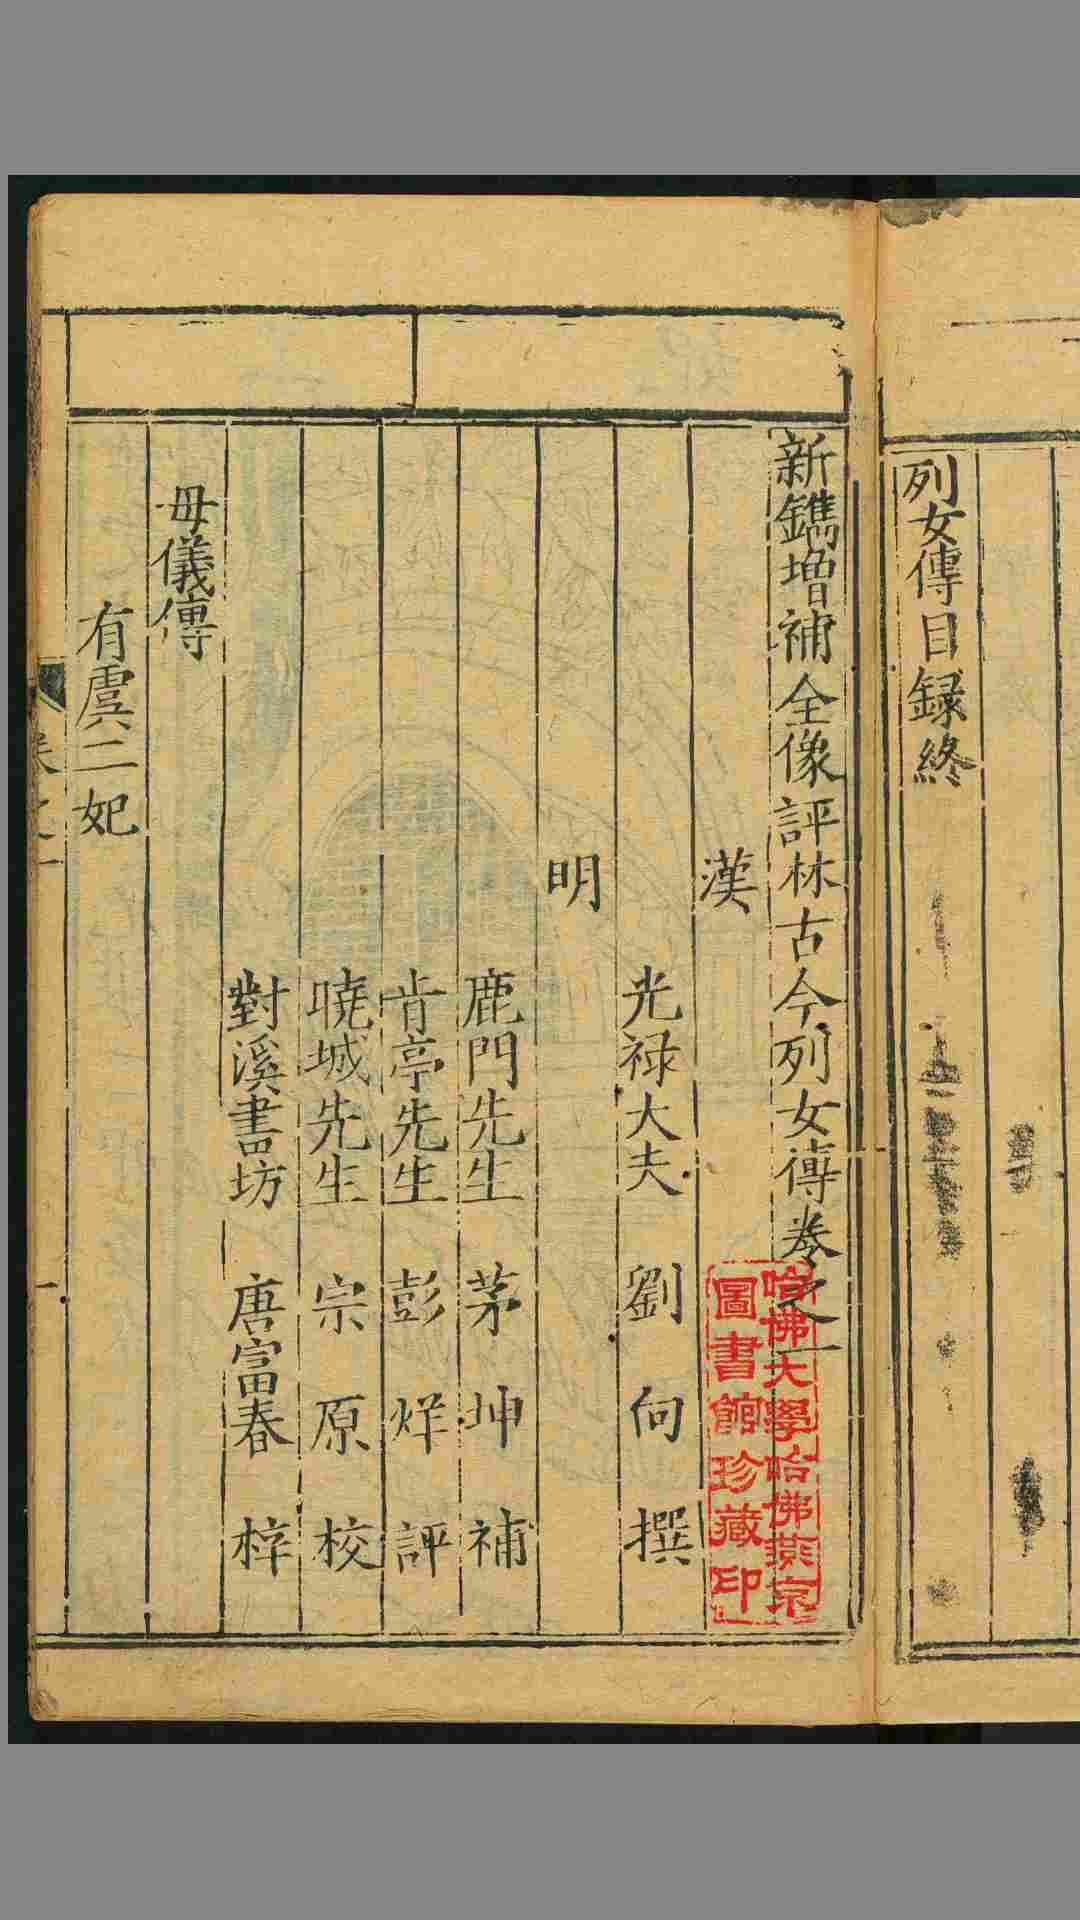 列女傳目録終
新鐫增補全像評林古今列女傳卷之一
漢
光禄大夫 劉向 撰
明
鹿門先生 茅坤 補
肯亭先生 彭烊 評
曉城先生 宗原 校
對溪書坊 唐富春 梓
母儀傳
有虞二妃
卷之一
一
哈佛大學哈佛燕京
圖書館珍藏印